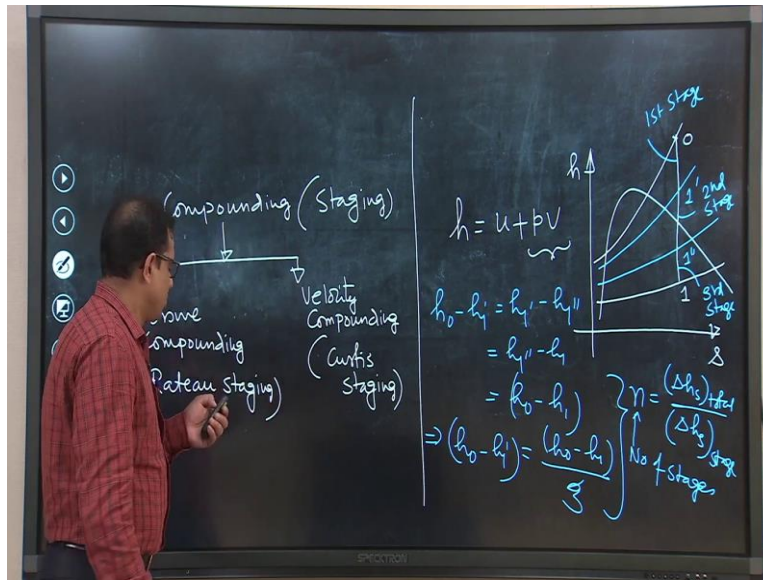 Compounding (Staging)
Compounding
Rateau Staging)
Velocity
Compounding
(Curtis
Staging)
h = u + pv
h₀ - h₁' = h₁' - h₁''
= h₁'' - h₁
= (h₀ - h₁)
⇒ (h₀ - h₁') = (h₀ - h₁) / 3
n = (Δhₛ)total / (Δhₛ)stage
No of stages
h
1st stage
0
1' 2nd
stage
1''
1 3rd
stage
s
SPECKTRON